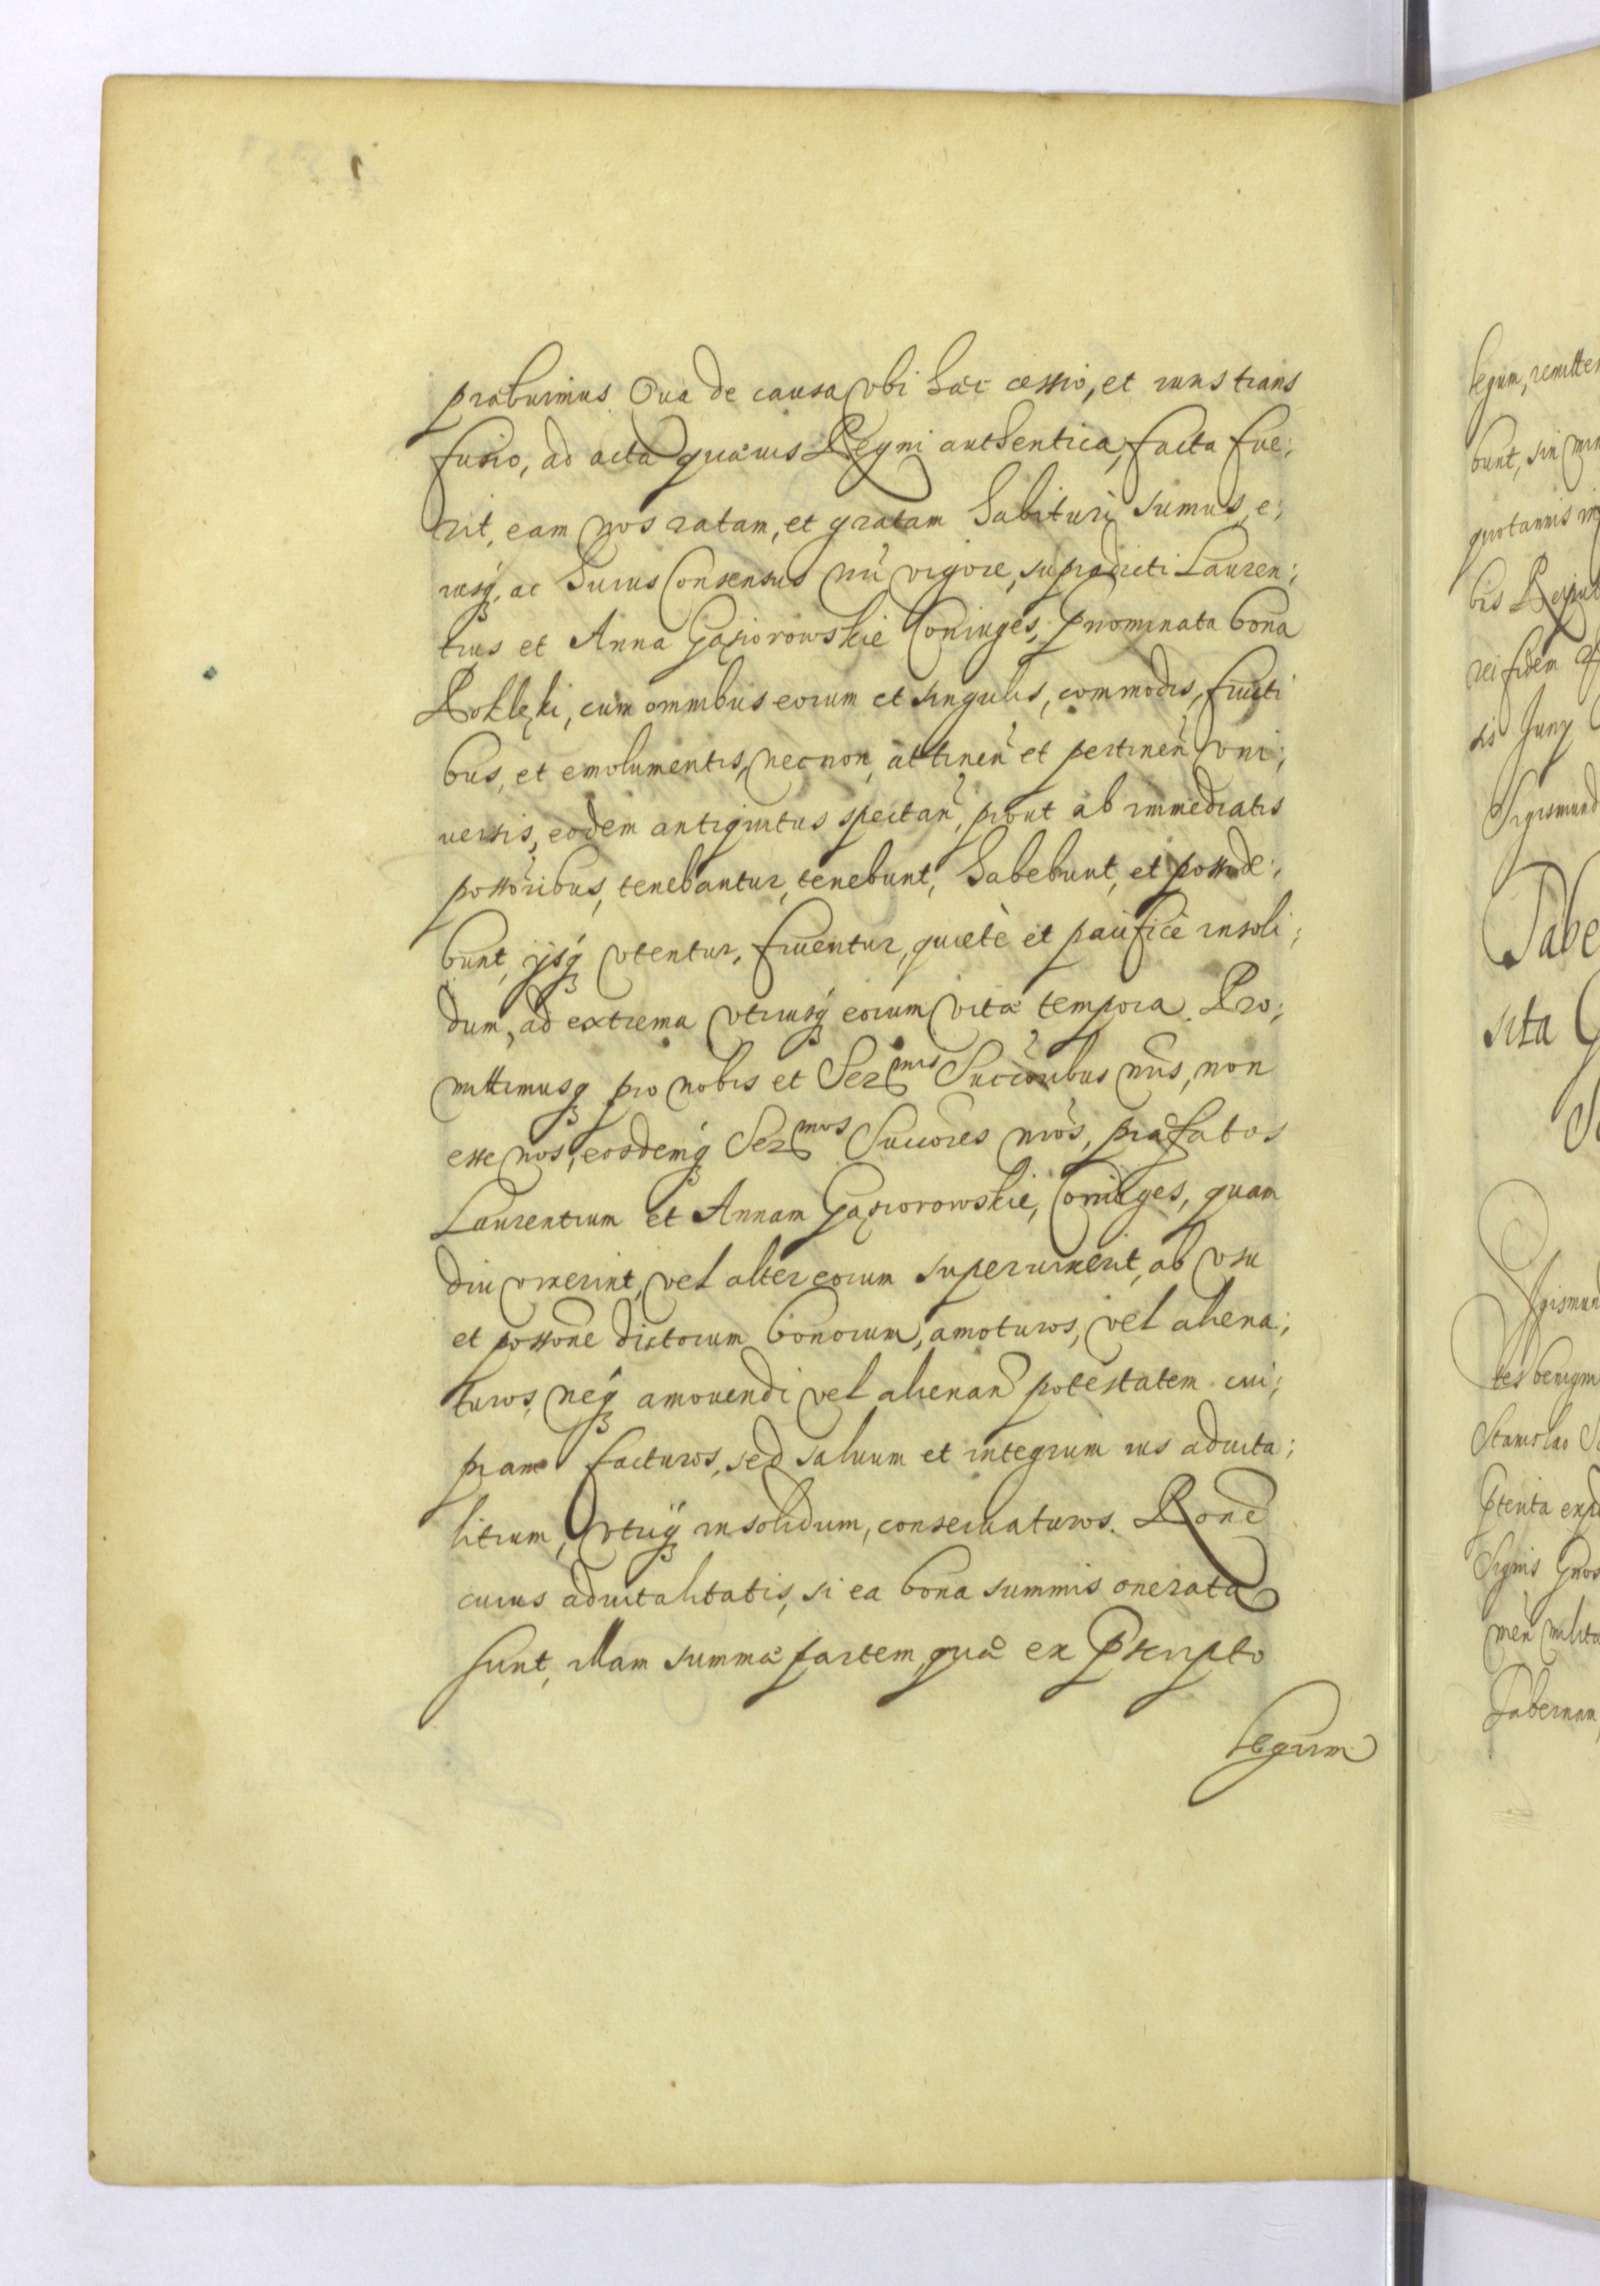 præbuimus Qua de causa vbi hæc cessio, et iuris trans
fusio, ad acta quæuis Regni authentica, facta fue;
rit, eam nos ratam, et gratam habituri sumus, e;
iusq, ac huius Consensus nri vigore, supradicti Lauren;
tius et Anna Gąsiorowskie Coniuges, pnominata bona
cum omnibus eorum et singulis, commodis, fructi
bus, et emolumentis, necnon, attinen et pertinen vni;
uersis, eodem antiquitus spectan, prout ab immediatis
possoribus, tenebantur, tenebunt, habebunt, et posside;
bunt, ijsq vtentur, fruentur, quietè et pacificè insoli;
dum, ad extrema vtriusq eorum vitæ tempora. Pro;
mittimusq pro nobis et Sermis Succoribus nris, non
esse nos, eosdemq Sermos Succores nros, præfatos
Laurentium et Annam Gąsiorowskie, Coniuges, quam
diu vixerint, vel alter eorum superuixerit, ab vsu
et possone dictorum bonorum, amoturos, vel aliena;
turos, neq amouendi vel alienan potestatem cui;
piam facturos, sed saluum et integrum ius aduita;
litium, vtriq insolidum, conseruaturos. Rone
cuius aduitalitatis, si ea bona summis onerata
sunt, illam summæ partem, quæ ex pscripto
legum
legum,
bunt, sin
quotannis
bis
rei fidem
dis Juny
Sigismund
Tabe
sita
Sigismun
tes benigni
Stanislao

Signis

men milita
Tabernam,